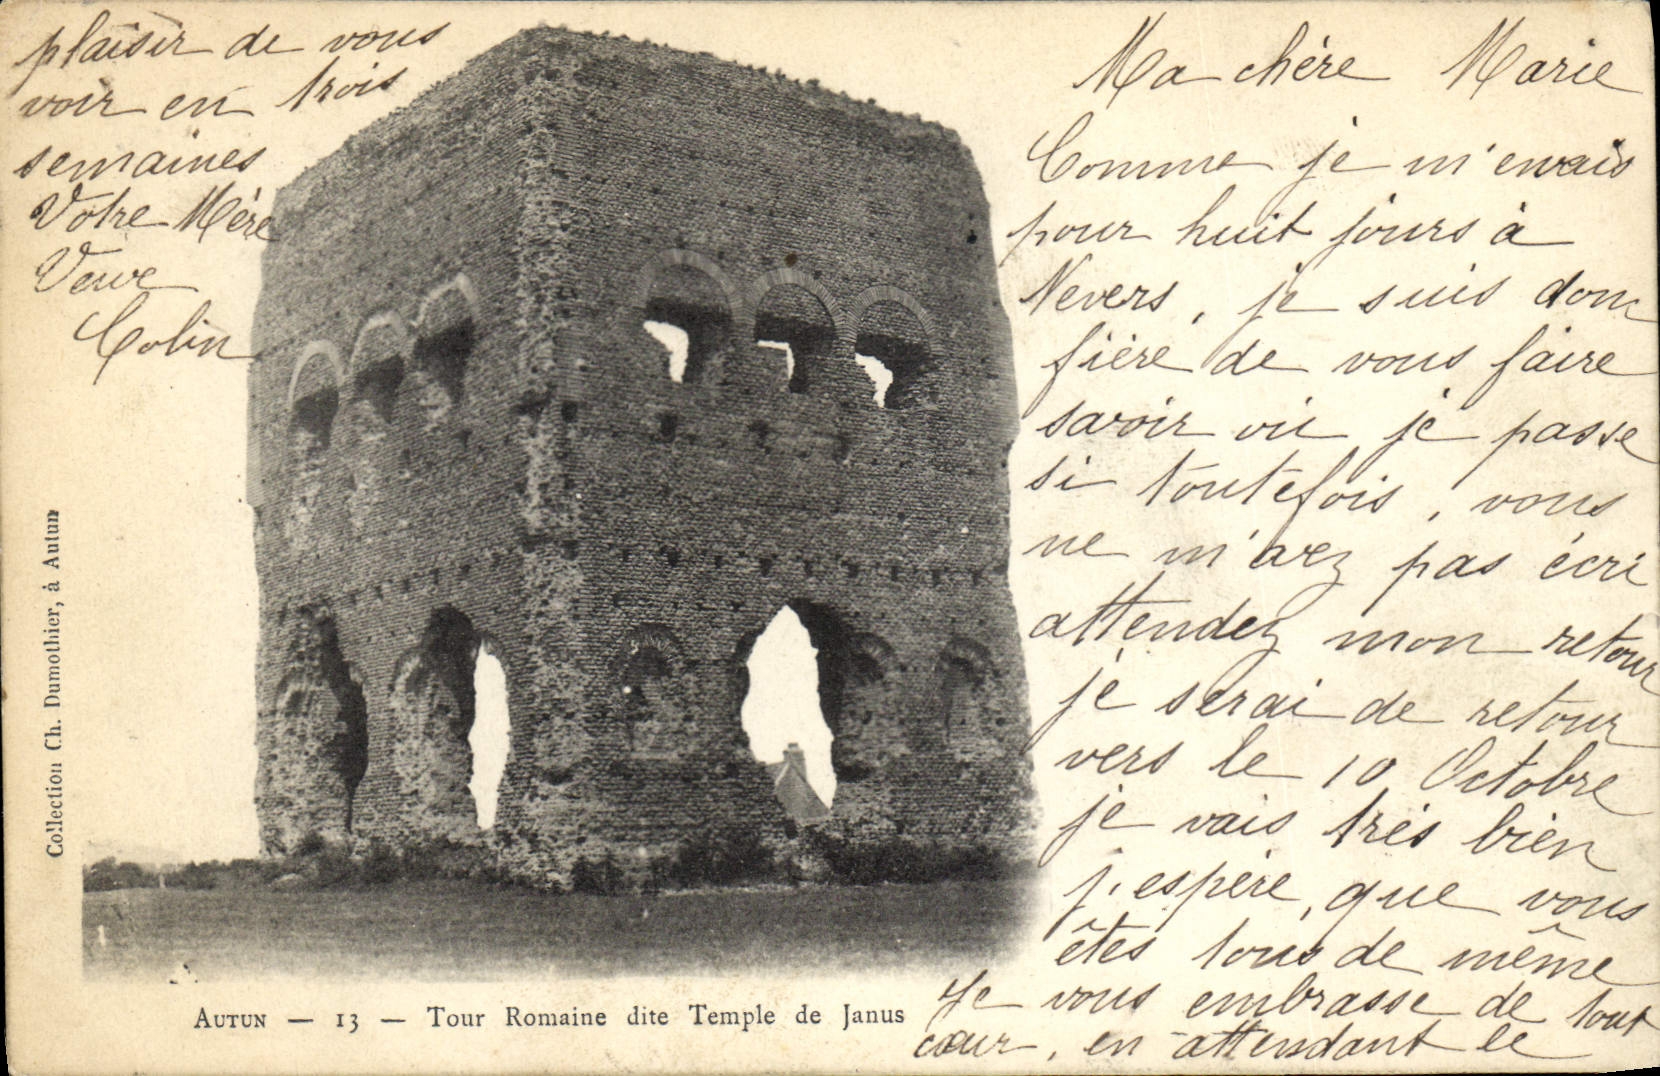 Ma chère Marie
Comme je m'envais
pour huit jours à
Nevers, je suis donc
fière de vous faire
savoir où je passe
si toutefois, vous
ne m'avez pas écri
attendez mon retour
je serai de retour
vers le 10 Octobre
je vais très bien
j'espère, que vous
êtes tous de même
Je vous embrasse de tout
cœur, en attendant le
plaisir de vous
voir en trois
semaines
Votre Mère
Veuve
Colin
Collection Ch. Dumothier, à Autun
AUTUN — 13 — Tour Romaine dite Temple de Janus